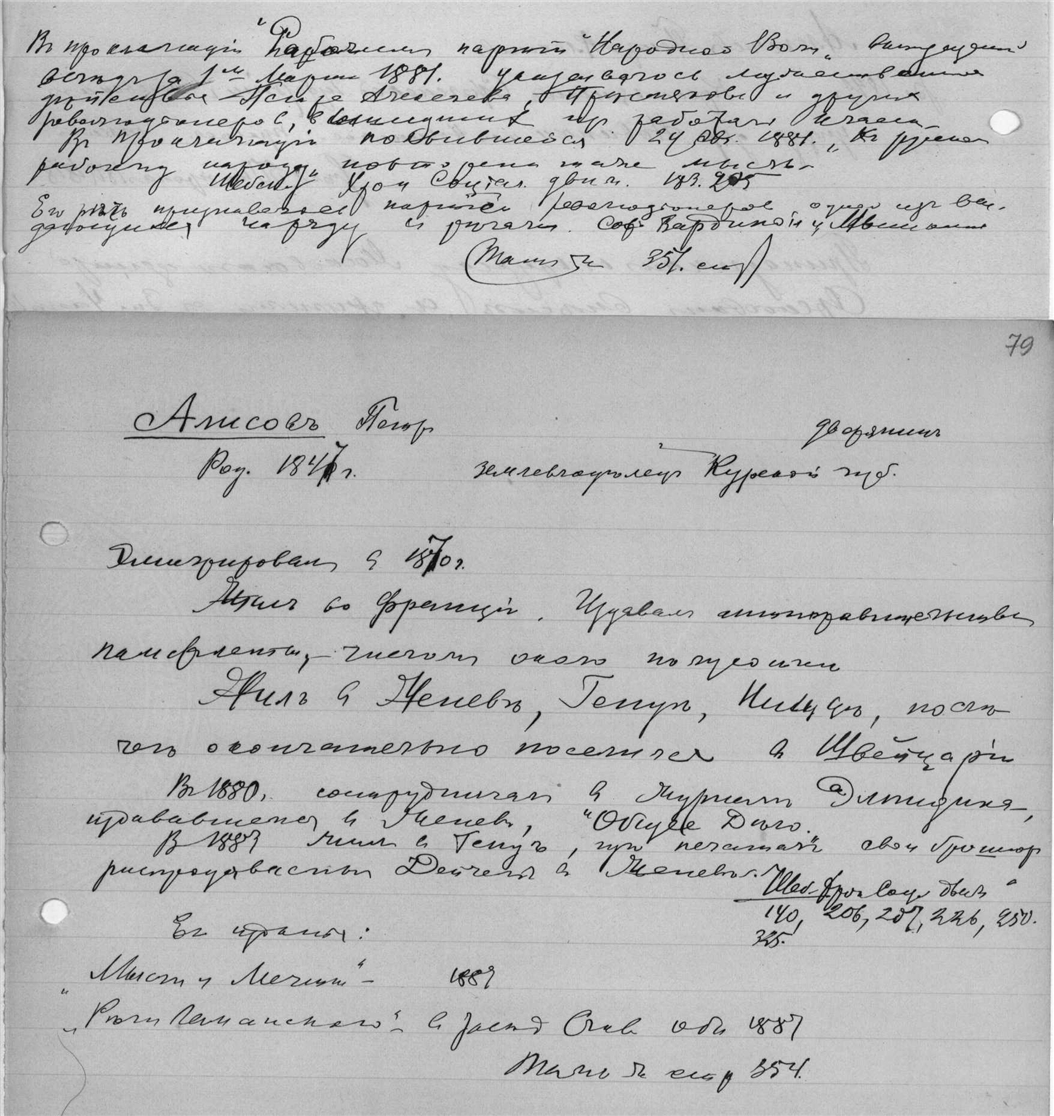 Въ прокламаціи "Рабочимъ партіи "Народной Воли", вышедшей
1го Марта 1881. указывалось
Петра Алексеева, и другихъ
революціонеров, вышедших из рабочаго класса
Въ прокламаціи появившейся 24 авг. 1881. "Къ русск.
рабочему народу" повторена таже мысль.
Шебеко "Хрон Соціал. движ. 193. 205
Его рѣчь признавалась партіей революціонеров одной изъ вы-
дающихся наряду с рѣчами Соф Бардиной и Мышкина
(Тамъ же 351. стр)
79
Алисовъ Петръ дворянинъ
Род. 1847 г. землевладелецъ Курской губ.
Эмигрировалъ в 1870 г.
Жилъ во Франціи. Издавалъ антиправительствен
памфлеты, числом около полусотни
Жилъ в Женевѣ, Генуѣ, Ниццѣ, послѣ
чего окончательно поселился в Швейцаріи
Въ 1880г. сотрудничал в журналѣ Элпидина,
издававшемся в Женевѣ, "Общее Дѣло.
В 1887 жил в Генуѣ, где печаталъ свои брошюр
распродаваемыя Дейчемъ в Женевѣ.
"Шеб. Хрон Соц. движ"
140, 206, 207, 226, 250.
325.
Его изданія:
"Мысли и Мечты" – 1887
"Рѣчи – в 1887
Тамъ же стр 354.